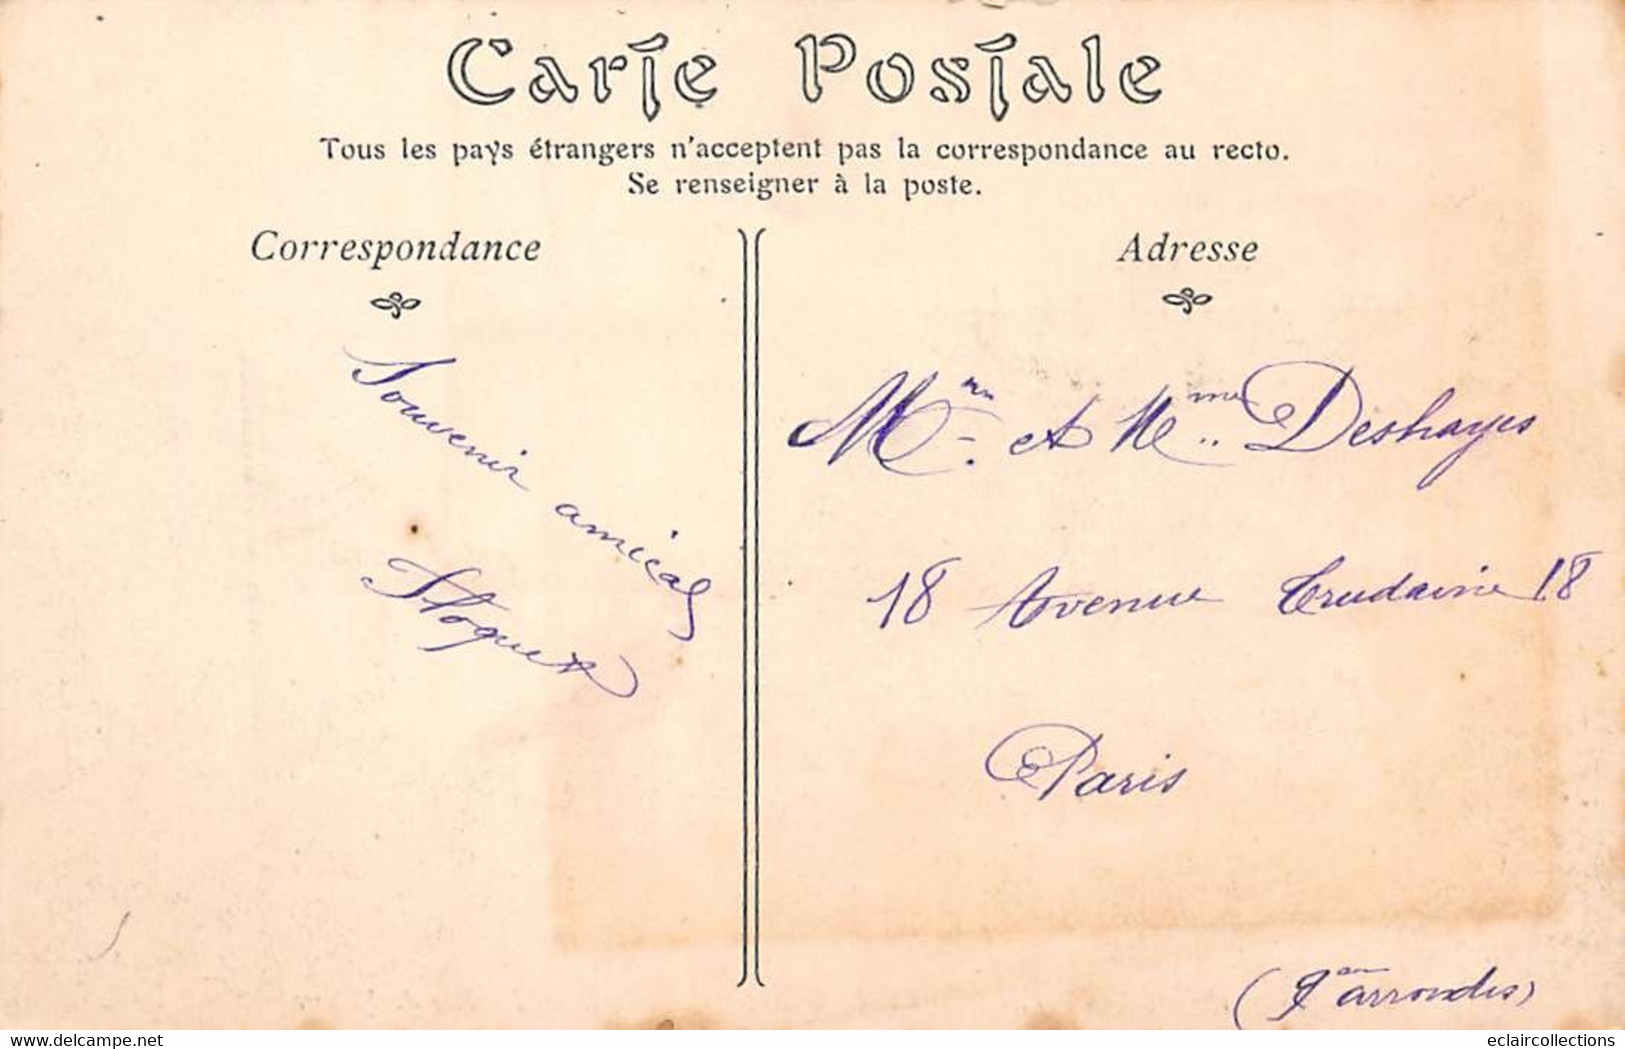 Carte Postale
Tous les pays étrangers n'acceptent pas la correspondance au recto.
Se renseigner à la poste.
Correspondance
Souvenir amical
Adresse
et Mme Deshayes
18 Avenue Trudaine 18
Paris
(9em arrondis)
eclaircollections